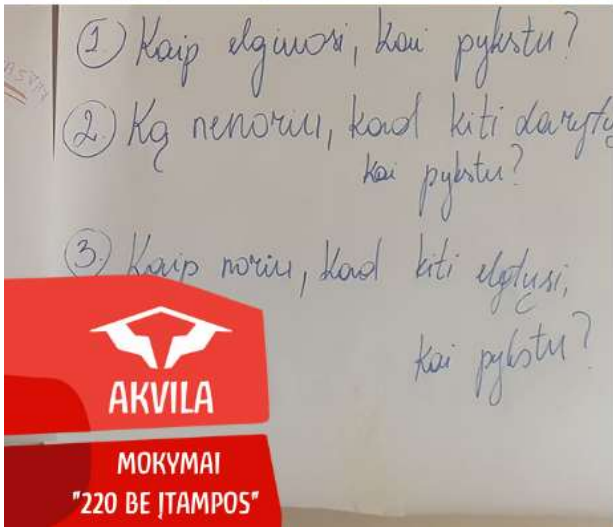 1. Kaip elgiuosi, kai pykstu?
2. Ką nenoriu, kad kiti darytų
kai pykstu?
3. Kaip noriu, kad kiti elgtųsi,
kai pykstu?
AKVILA
MOKYMAI
"220 BE ĮTAMPOS"